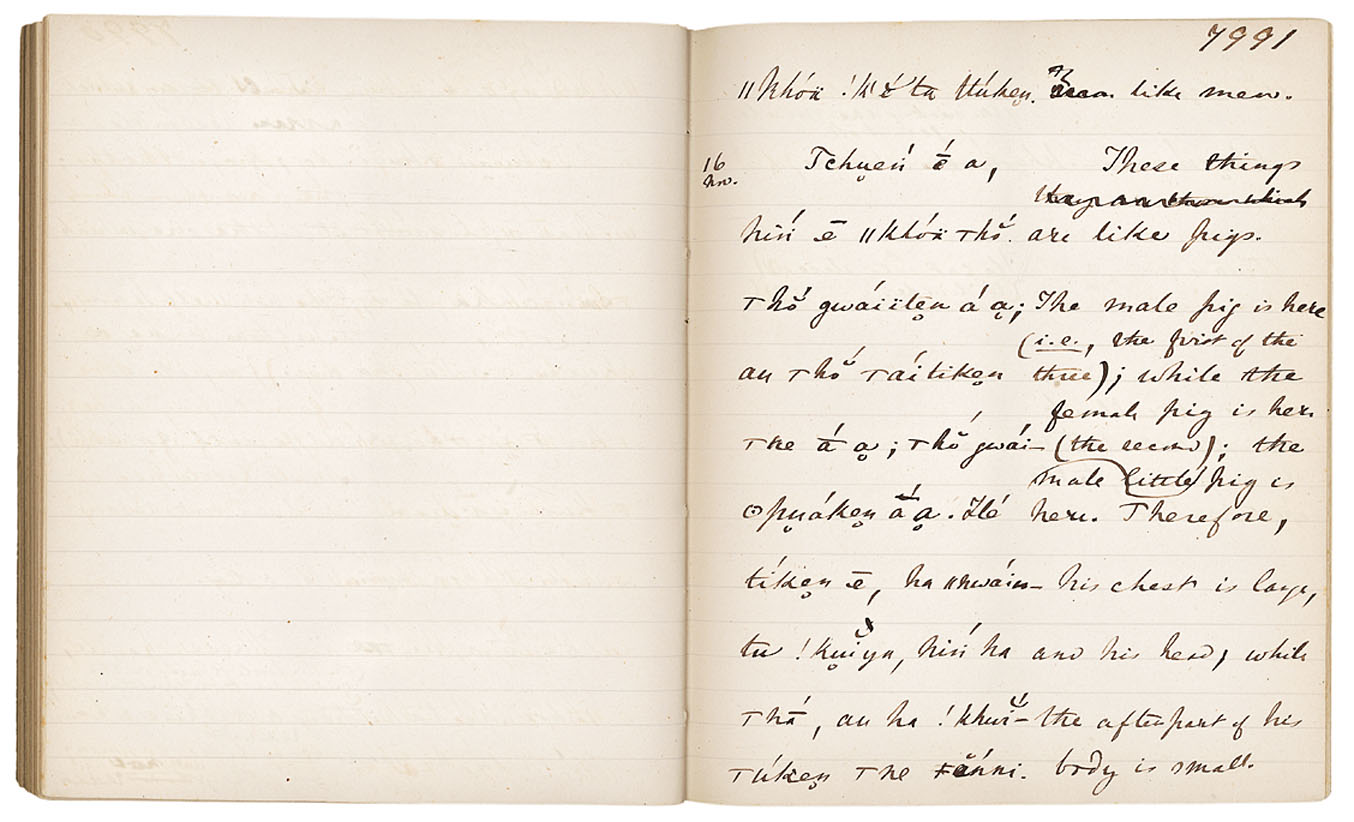 7991
‖khóä !k'ė́ ta túken̥. seem like men.
16 Nov. Tchu̥eń é̄ a, These things
hiń ē ‖khóä тhŏ́. are like pigs.
тhŏ́ gwáiïten̥ á a̤; The male pig is here
(i.e., the first of the
au тhŏ́ тáitiken̥ three); while the
female pig is here
тne ā́ a̤; тhŏ́ gwái- (the second); the
male little pig is
ʘpu̥áken̥ ā́ a̤. Ité here. Therefore,
tíken̥ ē, ha ‖nwáin- his chest is large,
tu !ku̥ĭ́ya, hiń ha and his head, while
тnā́, au ha !khwĭ́- the afterpart of his
túken̥ тne тĕ́nni. body is small.